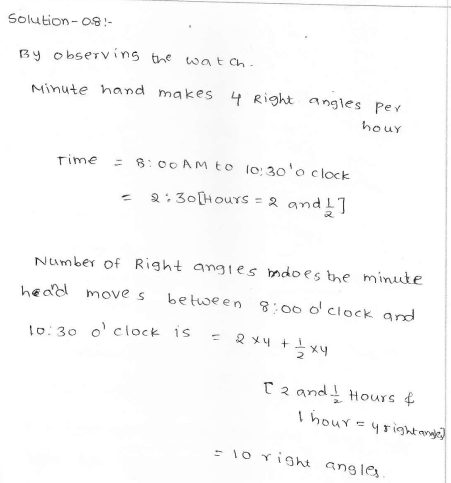 Solution-08:-
By observing the watch.
Minute hand makes 4 Right angles per
hour
Time = 8:00 AM to 10:30 'o clock
= 2:30 [Hours = 2 and 1/2]
Number of Right angles does the minute
hand moves between 8:00 o' clock and
10:30 o' clock is = 2 x4 + 1/2 x4
[ 2 and 1/2 Hours &
1 hour = 4 right angle]
= 10 right angles.